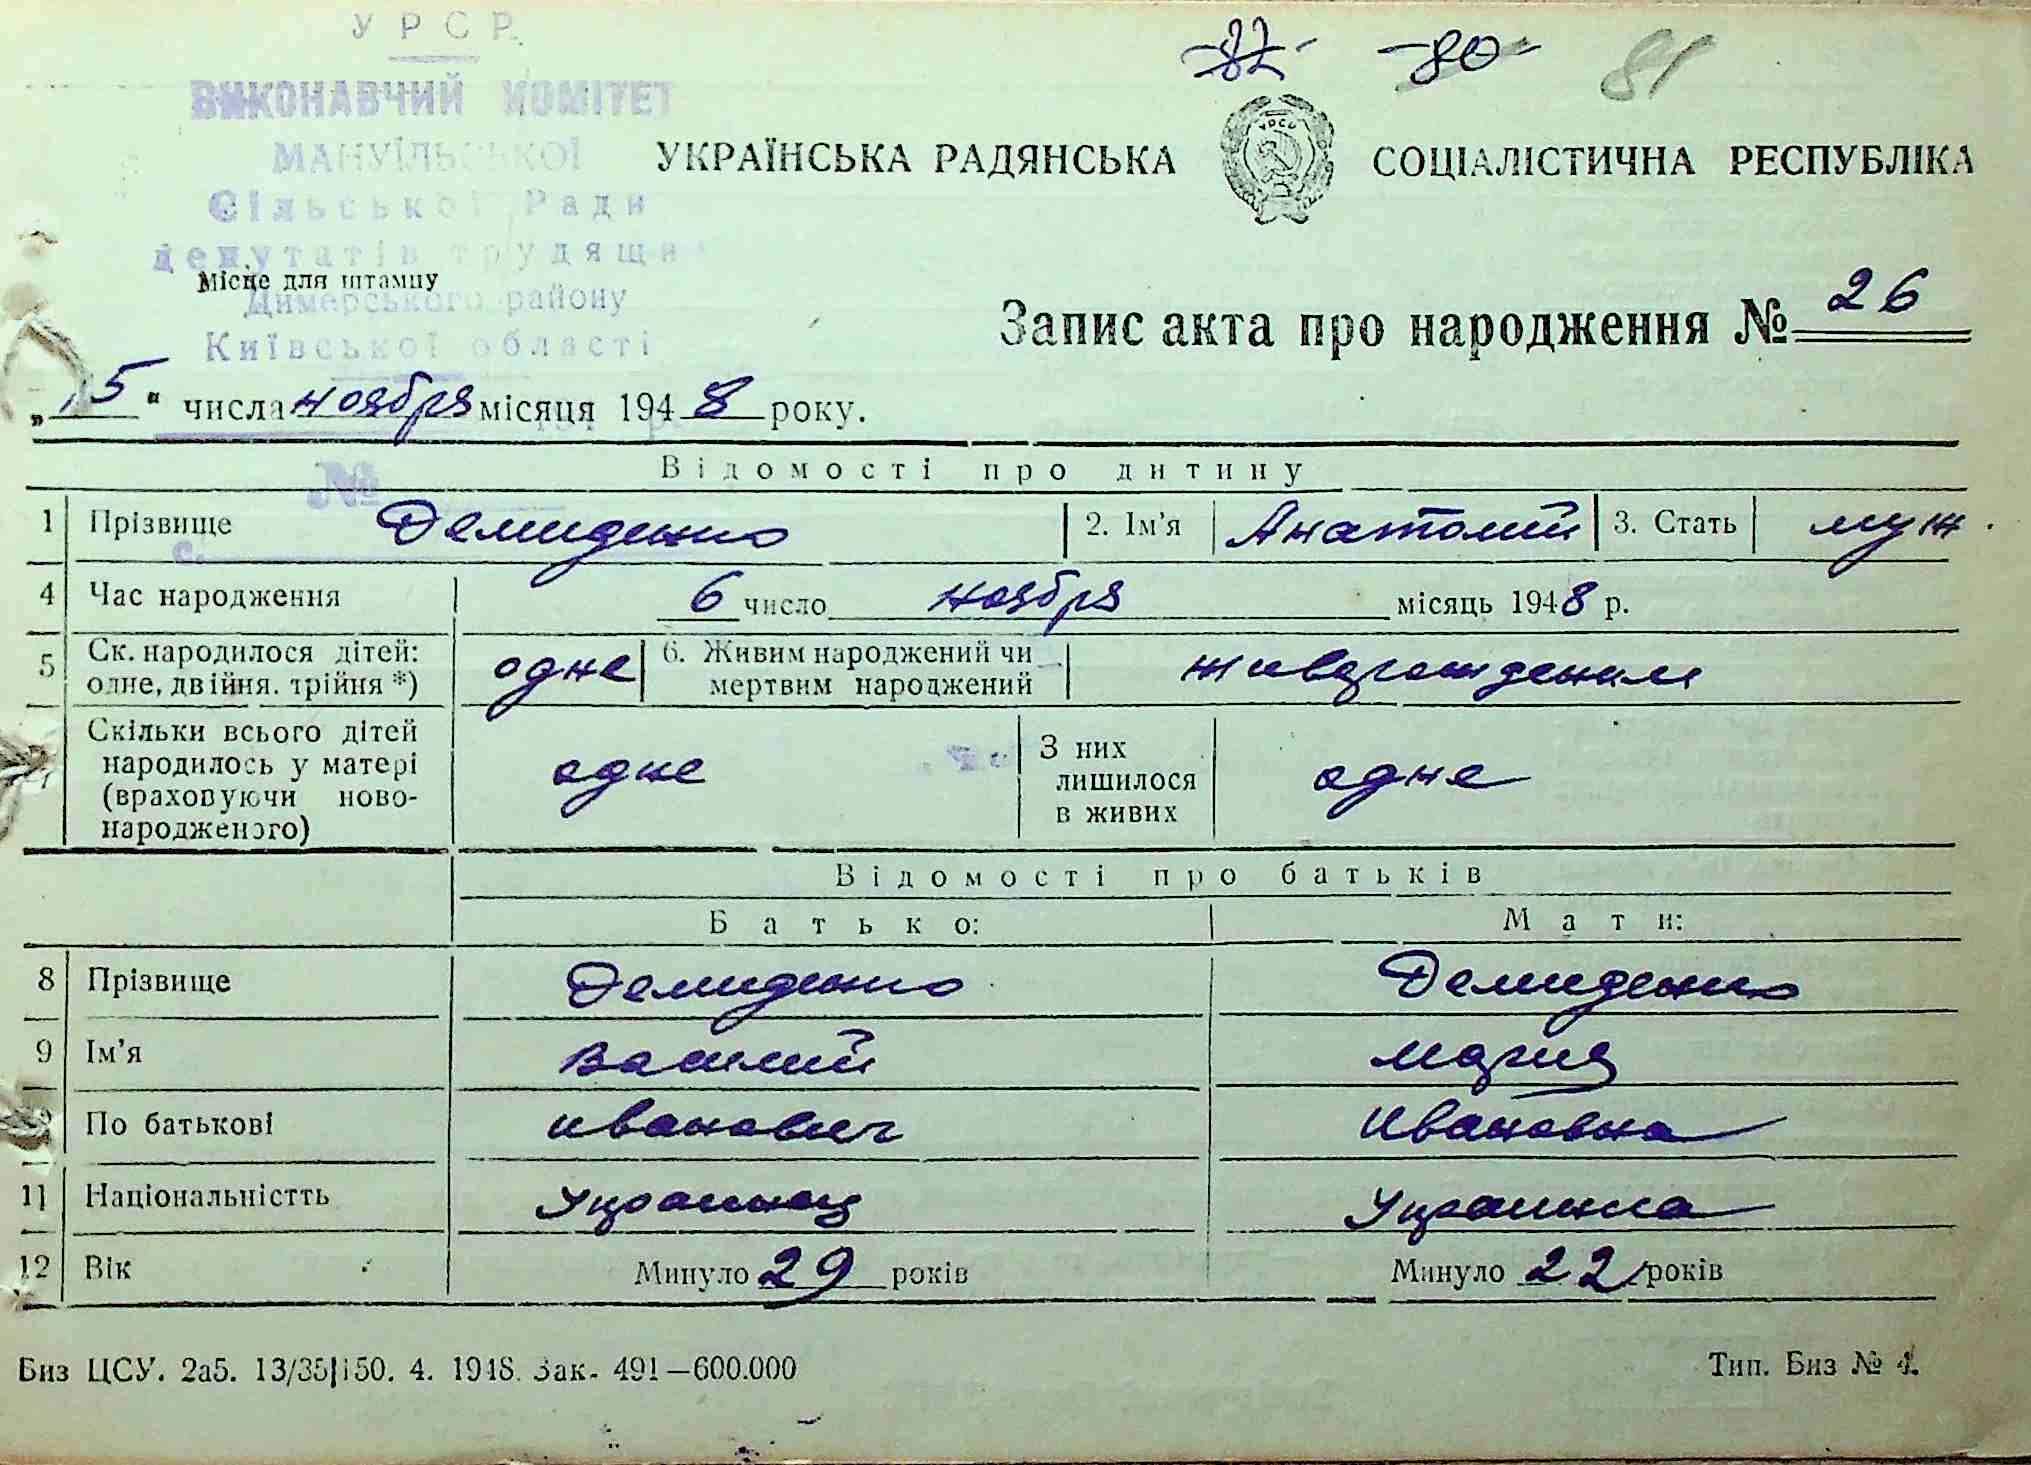 УРСР
ВИКОНАВЧИЙ КОМІТЕТ
МАНУЇЛЬСЬКОЇ
Сільської Ради
депутатів трудящи
Димерського району
Київської області
82 80 81
УКРАЇНСЬКА РАДЯНСЬКА СОЦІАЛІСТИЧНА РЕСПУБЛІКА
Місце для штампу
Запис акта про народження № 26
„15“ числа ноября місяця 1948 року.
№
Відомості про дитину
1 Прізвище Демиденко 2. Ім'я Анатолий 3. Стать муж.
с.
4 Час народження 6 число ноября місяць 1948 р.
5 Ск. народилося дітей: одне, двійня, трійня *) одне 6. Живим народжений чи мертвим народжений живорожденим
7 Скільки всього дітей народилось у матері (враховуючи ново-народженого) одне З них лишилося в живих одне
Відомості про батьків
Батько: Мати:
8 Прізвище Демиденко Демиденко
9 Ім'я Василий Мария
10 По батькові Иванович Ивановна
11 Національністть Украинец Украинка
12 Вік Минуло 29 років Минуло 22 років
Биз ЦСУ. 2а5. 13/35|150. 4. 1948. Зак. 491—600.000 Тип. Биз № 4.